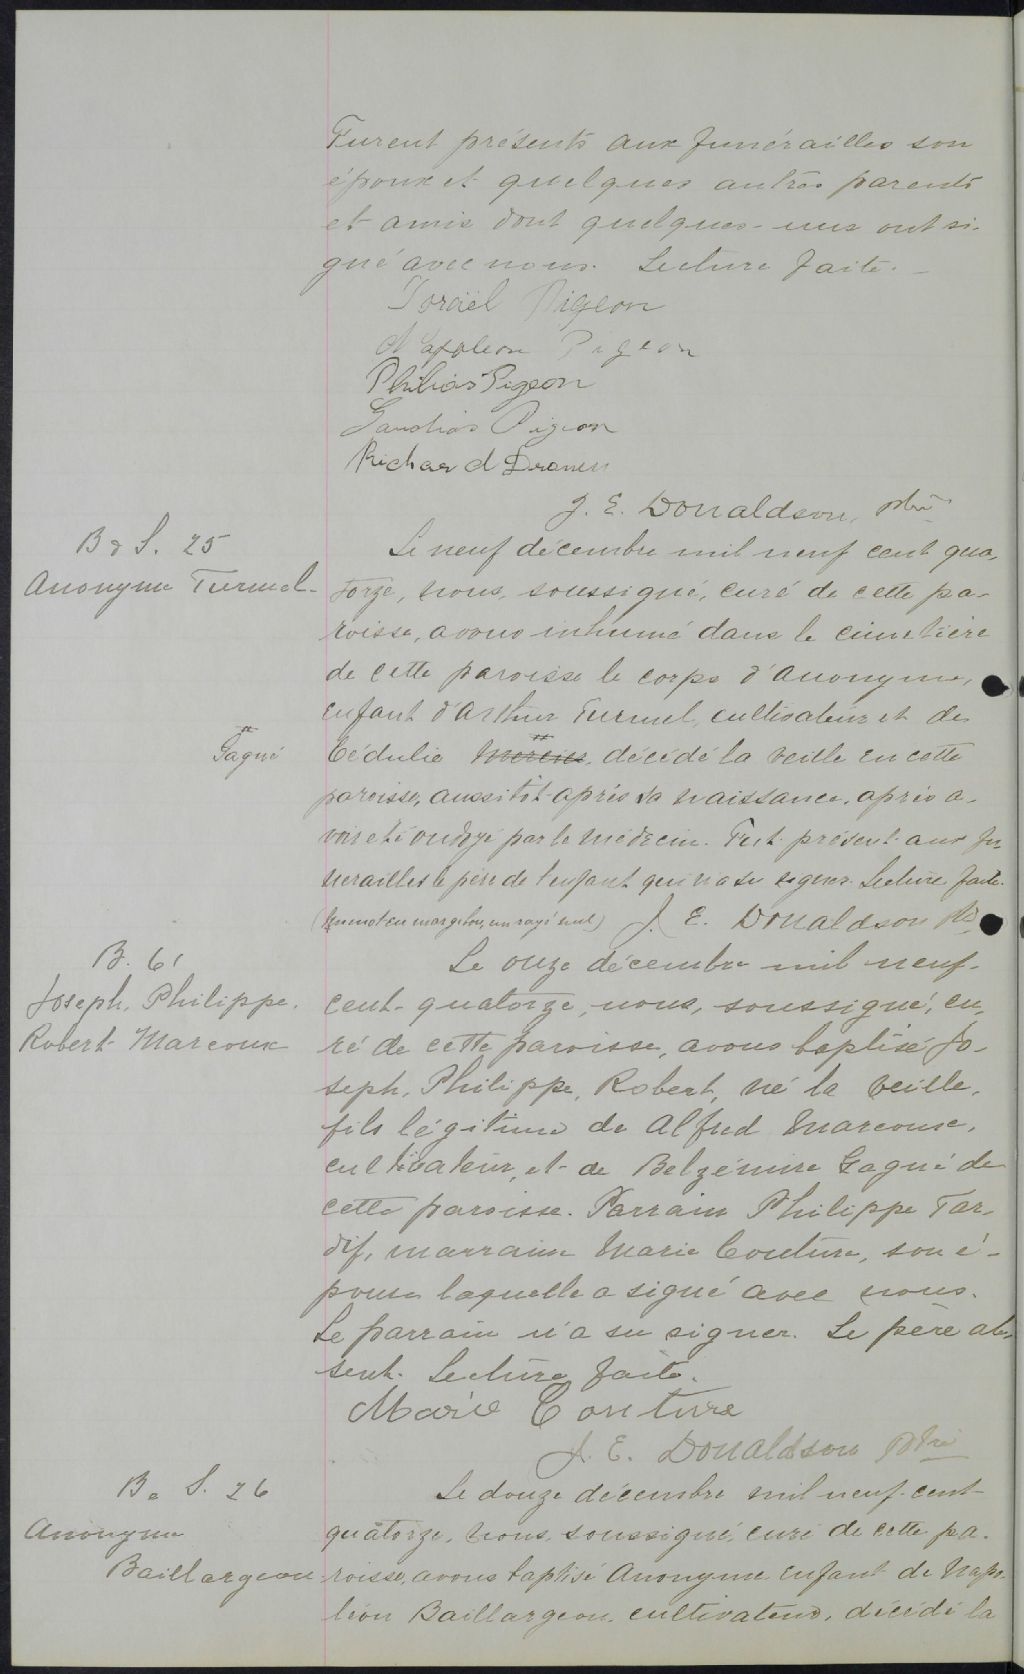 Furent présents aux funérailles son
époux et quelques autres parents
et amis dont quelques-uns ont si-
gné avec nous. Lecture faite.
Israël Pigeon
Napoleon Pigeon
Philias Pigeon
Gaudias Pigeon
Richard
J. E. Donaldson, Ptre
B & S. 25
Anonyme Turmel
Le neuf décembre mil neuf cent qua-
torze, nous, soussigné, curé de cette pa-
roisse, avons inhumé dans le cimetière
de cette paroisse le corps d'Anonyme,
enfant d'Arthur Turmel, cultivateur et de
Gagné
Cédulie Mercier, décédé la veille en cette
paroisse, aussitôt après sa naissance, après a-
voir été ondoyé par le médecin. Fut présent aux fu-
nerailles le père de l'enfant qui n'a su signer. Lecture faite.
(Un mot en marge bon, un rayé nul) J. E. Donaldson Ptre
B. 61
Joseph, Philippe,
Robert Marcoux
Le onze décembre mil neuf-
cent-quatorze, nous, soussigné, cu-
ré de cette paroisse, avons baptisé Jo-
seph, Philippe, Robert, né la veille,
fils légitime de Alfred Marcoux,
cultivateur, et de Belzémire Gagné de
cette paroisse. Parrain Philippe Tar-
dif, marraine Marie Couture, son é-
pouse laquelle a signé avec nous.
Le parrain n'a su signer. Le père ab-
sent. Lecture faite.
Marie Couture
J. E. Donaldson Ptre
B. S. 26
Anonyme
Baillargeon
Le douze décembre mil neuf-cent-
quatorze, nous, soussigné, curé de cette pa-
roisse, avons baptisé Anonyme enfant de Napo-
léon Baillargeon, cultivateur, décédé la